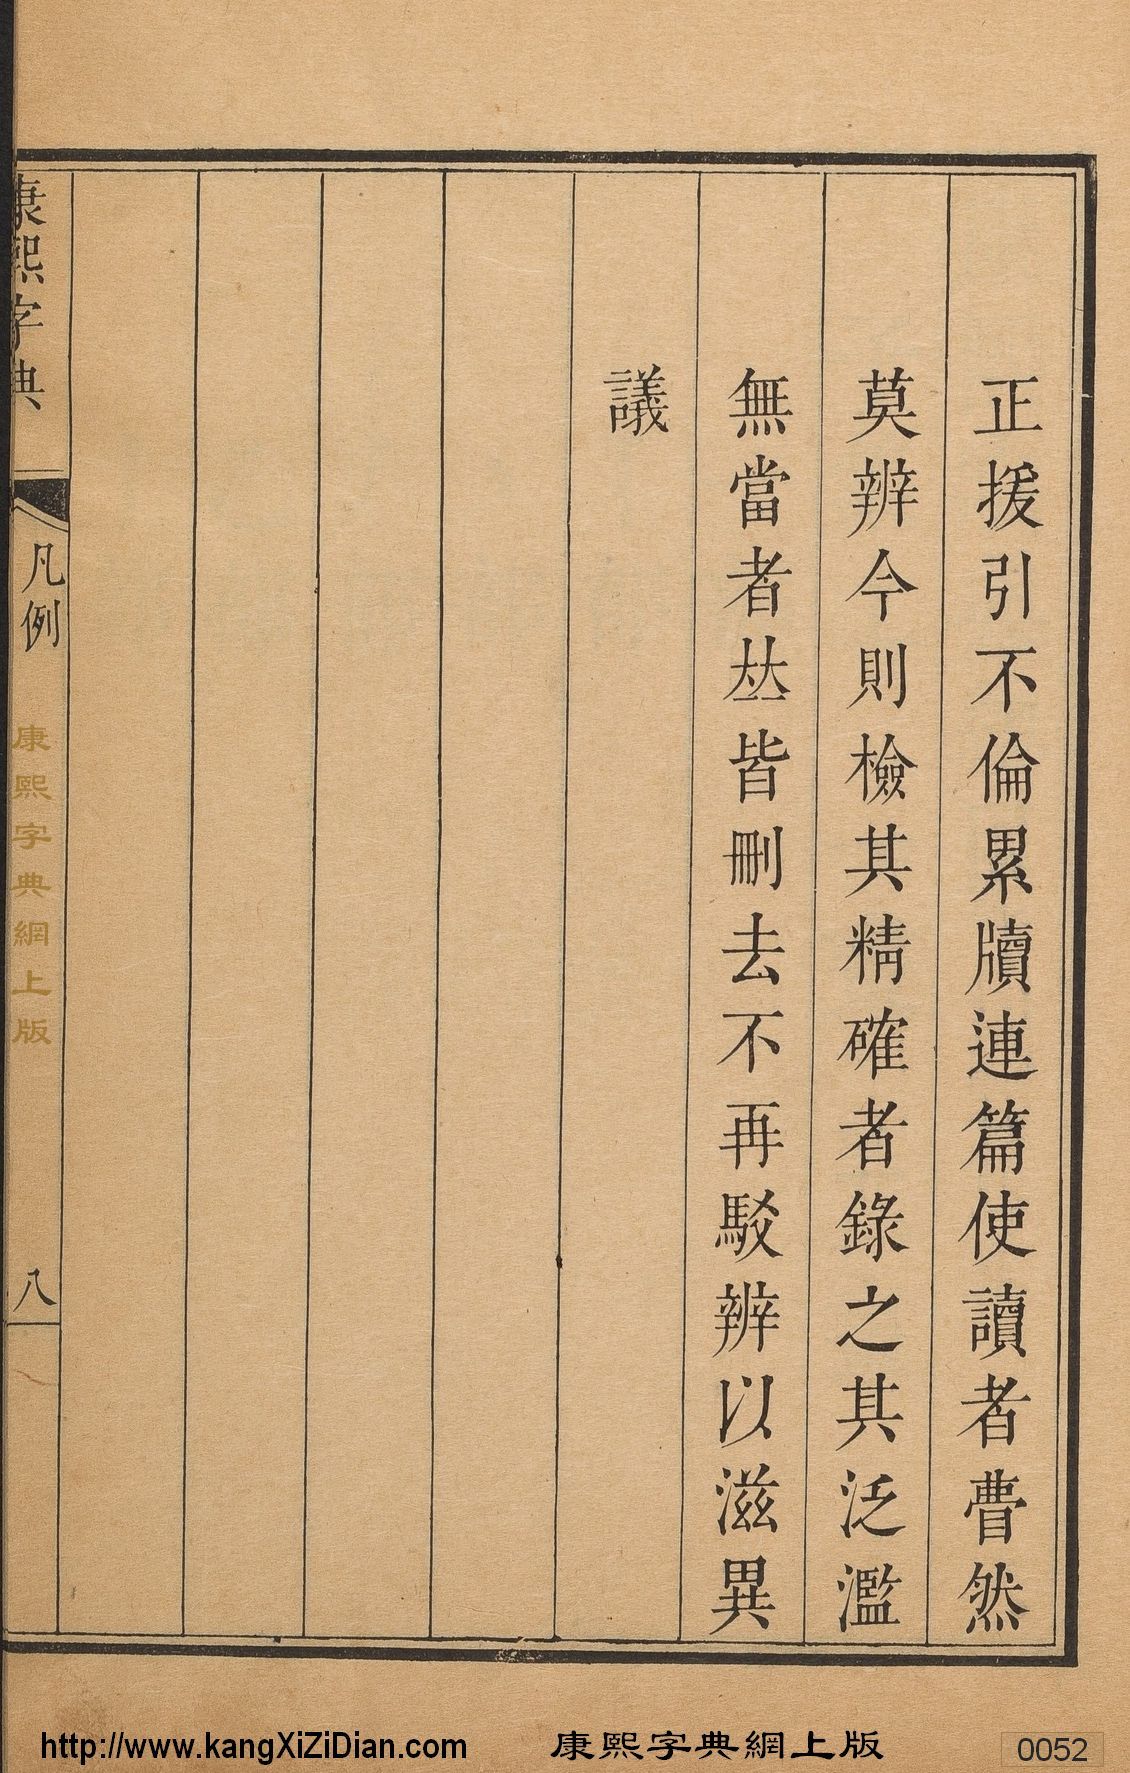 正援引不倫累牘連篇使讀者瞢然
莫辨今則檢其精確者錄之其泛濫
無當者𠀤皆刪去不再駁辨以滋異
議
康熙字典
凡例
八
康熙字典網上版
http://www.kangXiZiDian.com
康熙字典網上版
0052